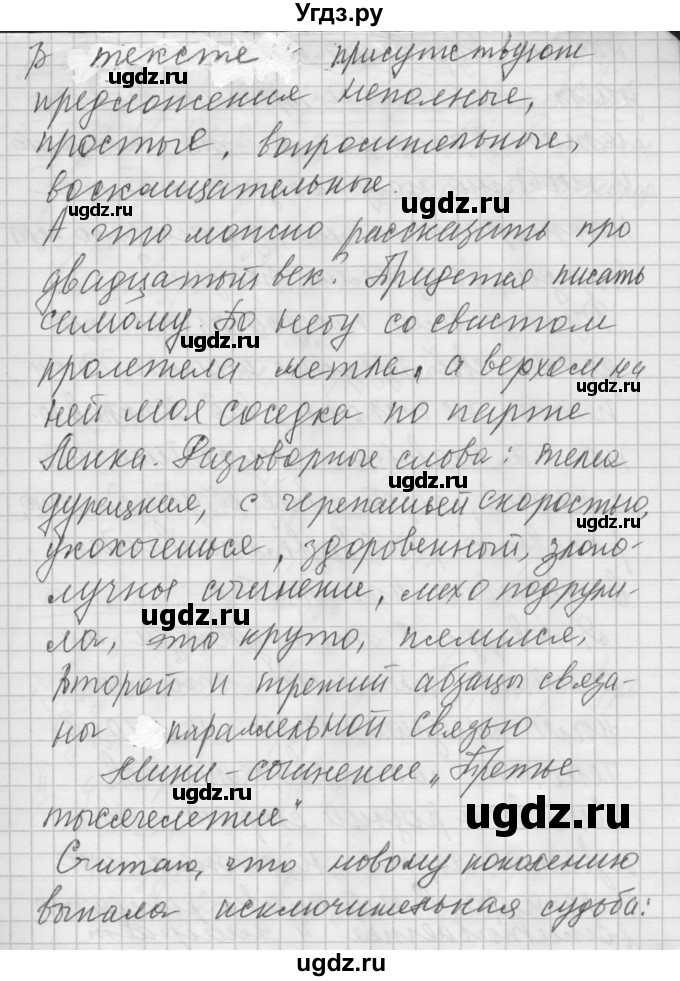 Угдз.ру
В тексте присутствуют
ugdz.ru
предложения неполные,
простые, вопросительные,
восклицательные.
ugdz.ru
ugdz.ru
А что можно рассказать про
двадцатый век. Придется писать
самому. По небу со свистом
ugdz.ru
пролетела метла, а верхом на
ugdz.ru
ней моя соседка по парте
Ленка. Разговорные слова: тема
ugdz.ru
дурацкая, с черепашьей скоростью,
ugdz.ru
ухохочешься, здоровенный, злопо-
лучное сочинение, лихо подрули-
ugdz.ru
ла, это круто, пялился,
ugdz.ru
Второй и третий абзацы связа-
ны параллельной связью
Мини-сочинение „Третье
ugdz.ru
ugdz.ru
тысячелетие"
Считаю, что новому поколению
выпала исключительная судьба:
ugdz.ru